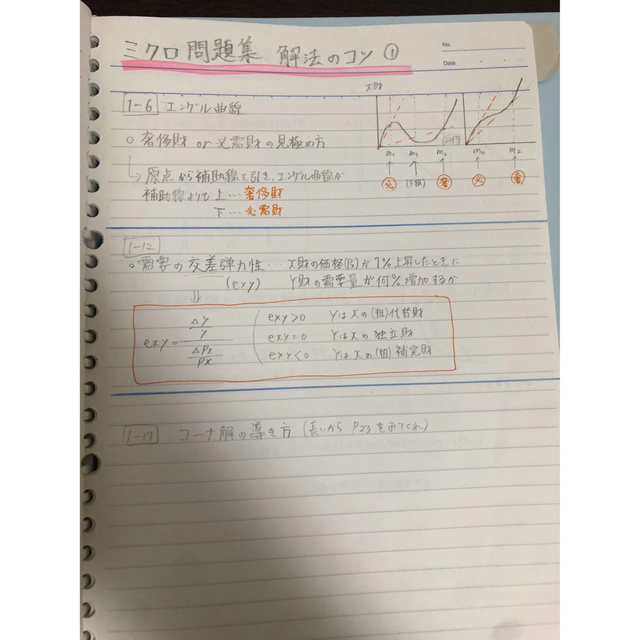 ミクロ問題集 解法のコツ①
No.
Date
1-6 エンゲル曲線
X財
○ 奢侈財 or 必需財の見極め方
m₀ m₁ m₂ m₀ m₂
必 (下級) 奢 必 奢
↳ 原点から補助線を引き、エンゲル曲線が
補助線よりも 上…奢侈財
下…必需財
1-12
○需要の交差弾力性… X財の価格(Px)が1%上昇したときに
(exy) Y財の需要量が何%増加するか
⇓
exy = ΔY/Y / ΔPx/Px
exy>0 YはXの(粗)代替財
exy=0 YはXの独立財
exy<0 YはXの(粗)補完財
1-17 コーナ解の導き方 (長いから P23をみてくれ)